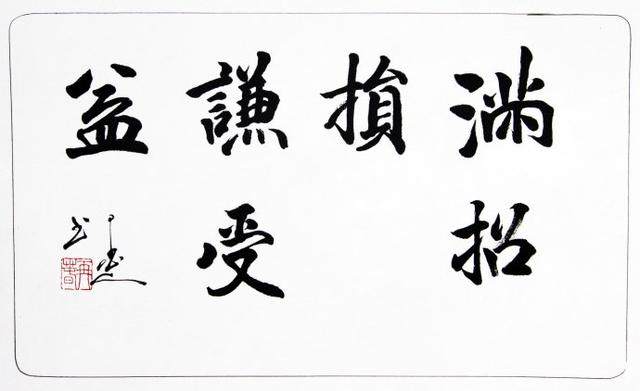 滿招
損
謙受
益